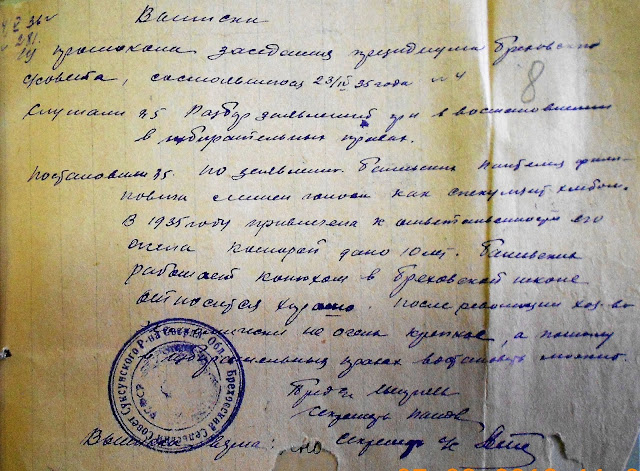 Выписка
протокола заседания президиума Бреховского
с/совета, состоявшегося 23/IV 35 года №4
8
Слушали 35 Разбор заявлений гр-н в востановлении
в избирательных правах.
Постановили 35. По заявлению Пантелея Фили-
повича лишен голоса как спекулянт хлебом.
В 1935 году привлечена к ответственности его
жена которой дано 10 лет.
работает конюхом в Бреховской школе
относится хорошо. После революции хоз-во
не очень крепкое, а потому
в избирательных правах востановить можно.
Пред
Секретарь
Выписка верна: Секретарь
Бреховский Сельский Совет Суксунского Р-на Обл.
РСФСР